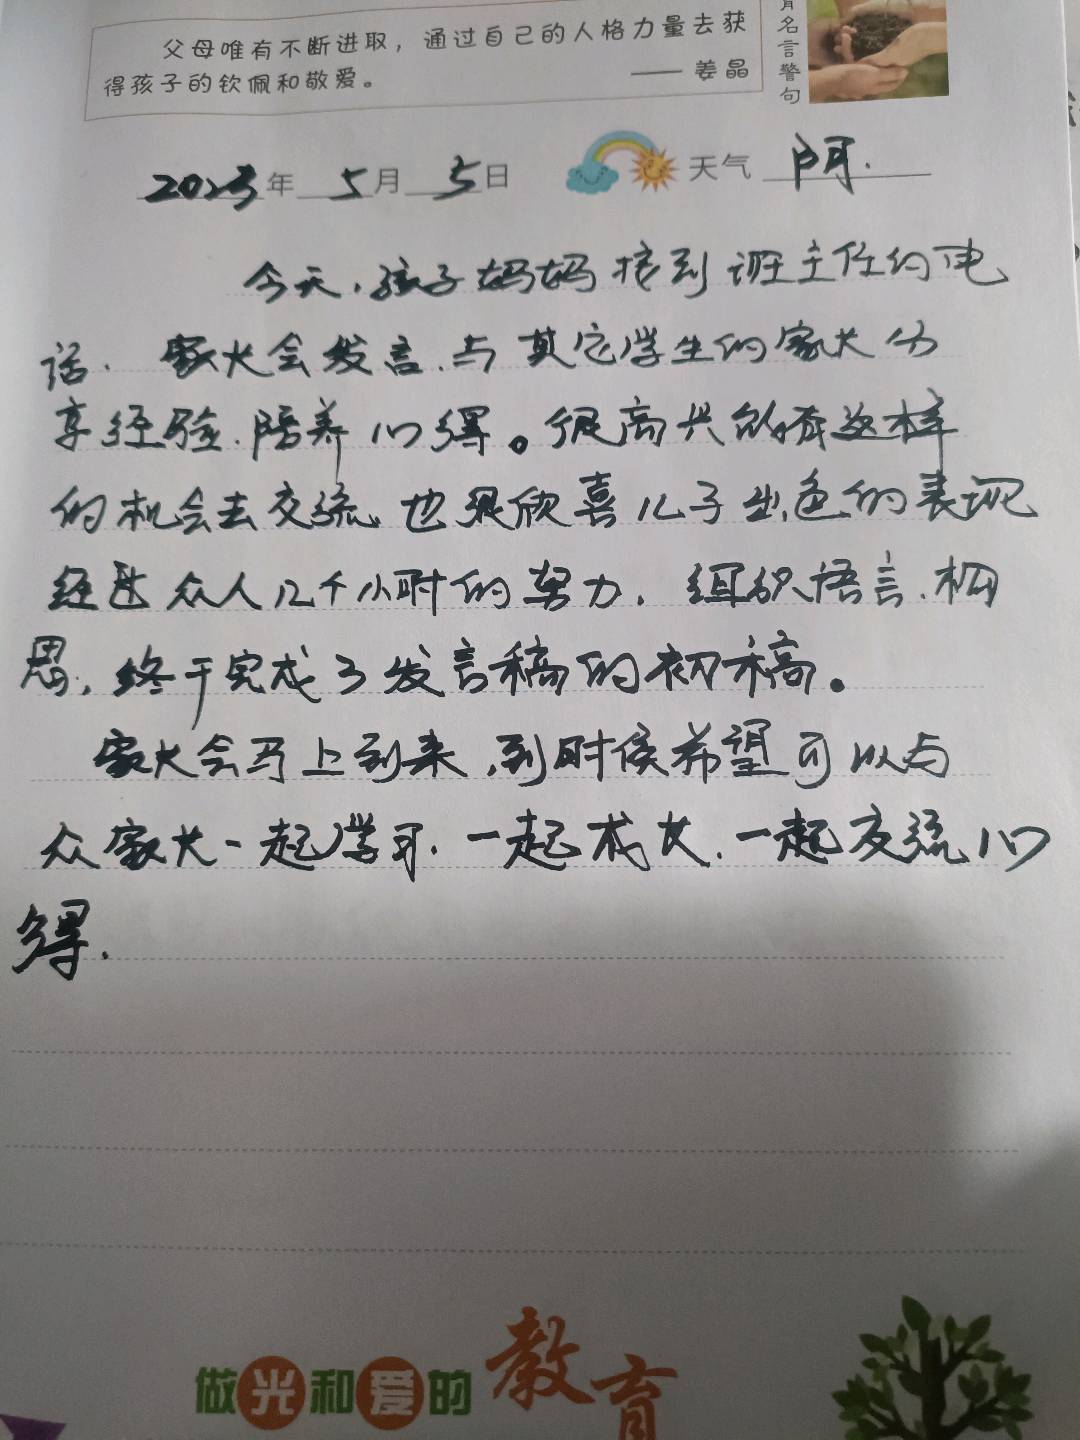 父母唯有不断进取，通过自己的人格力量去获
得孩子的钦佩和敬爱。 —— 姜晶
名言警句
2023年 5月 5日 天气 阴.
今天,孩子妈妈接到班主任的电
话.家长会发言.与其它学生的家长分
享经验.陪养心得。很高兴能有这样
的机会去交流,也很欣喜儿子出色的表现
经过众人几个小时的努力,组织语言.构
思,终于完成了发言稿的初稿。
家长会马上到来,到时候希望可以与
众家长一起学习.一起成长.一起交流心
得.
做光和爱的教育